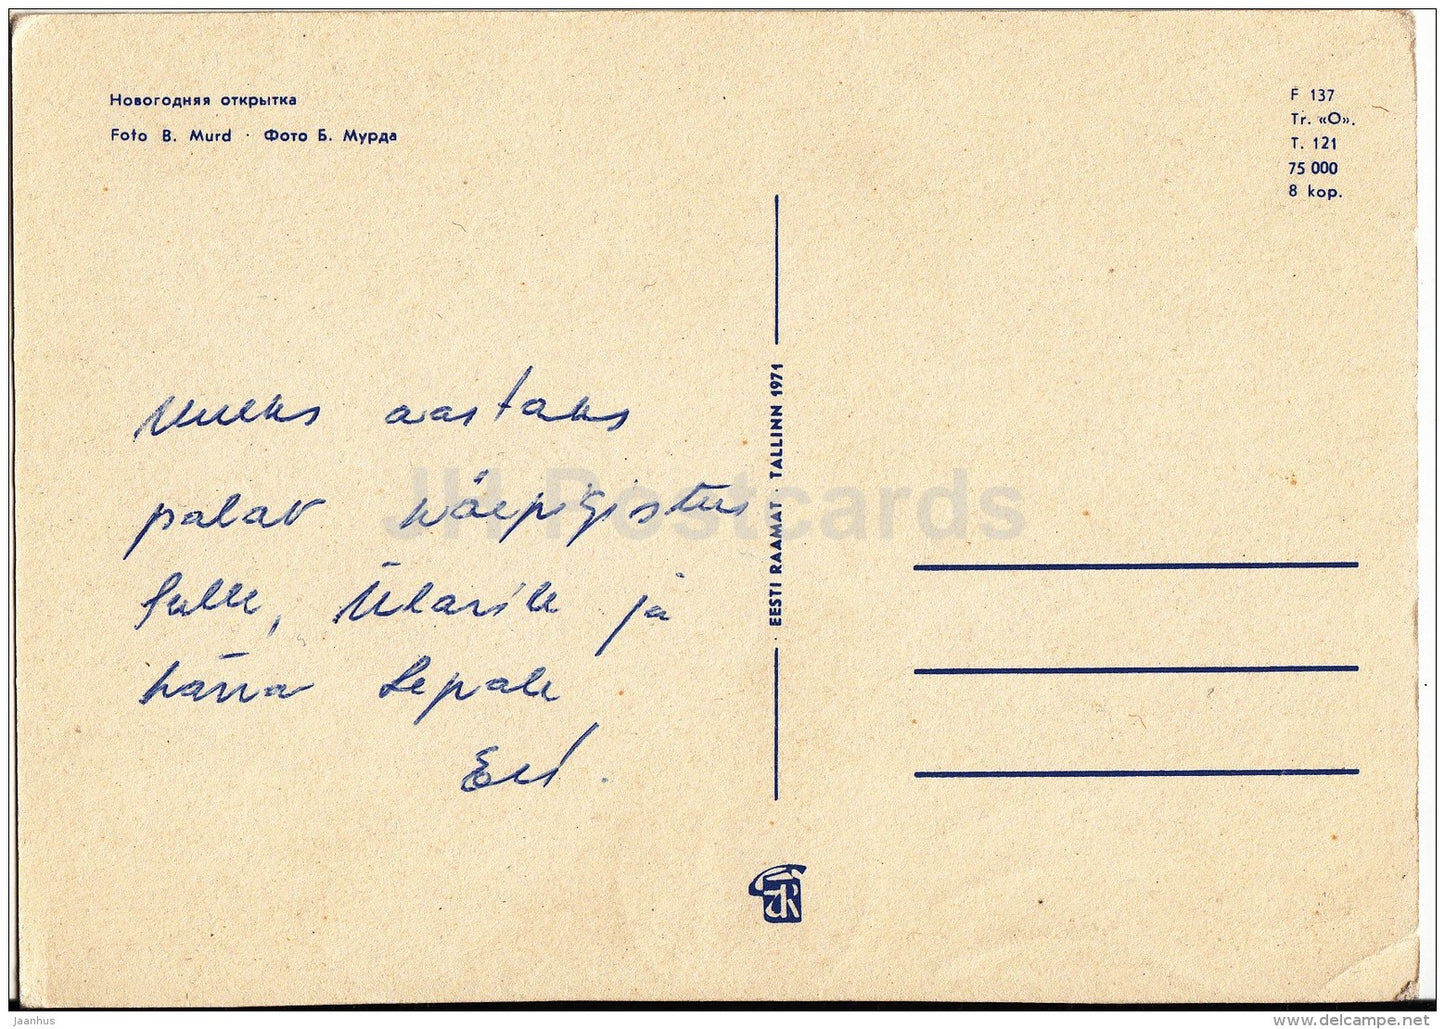 Новогодняя открытка
Foto B. Murd · Фото Б. Мурда
F 137
Tr. «O».
T. 121
75 000
8 kop.
uueks aastaks
palav käepigistus
Sulle, Ülarile ja
härra Lepale
EESTI RAAMAT · TALLINN 1971
JH Postcards
jaanhus
www.delcampe.net